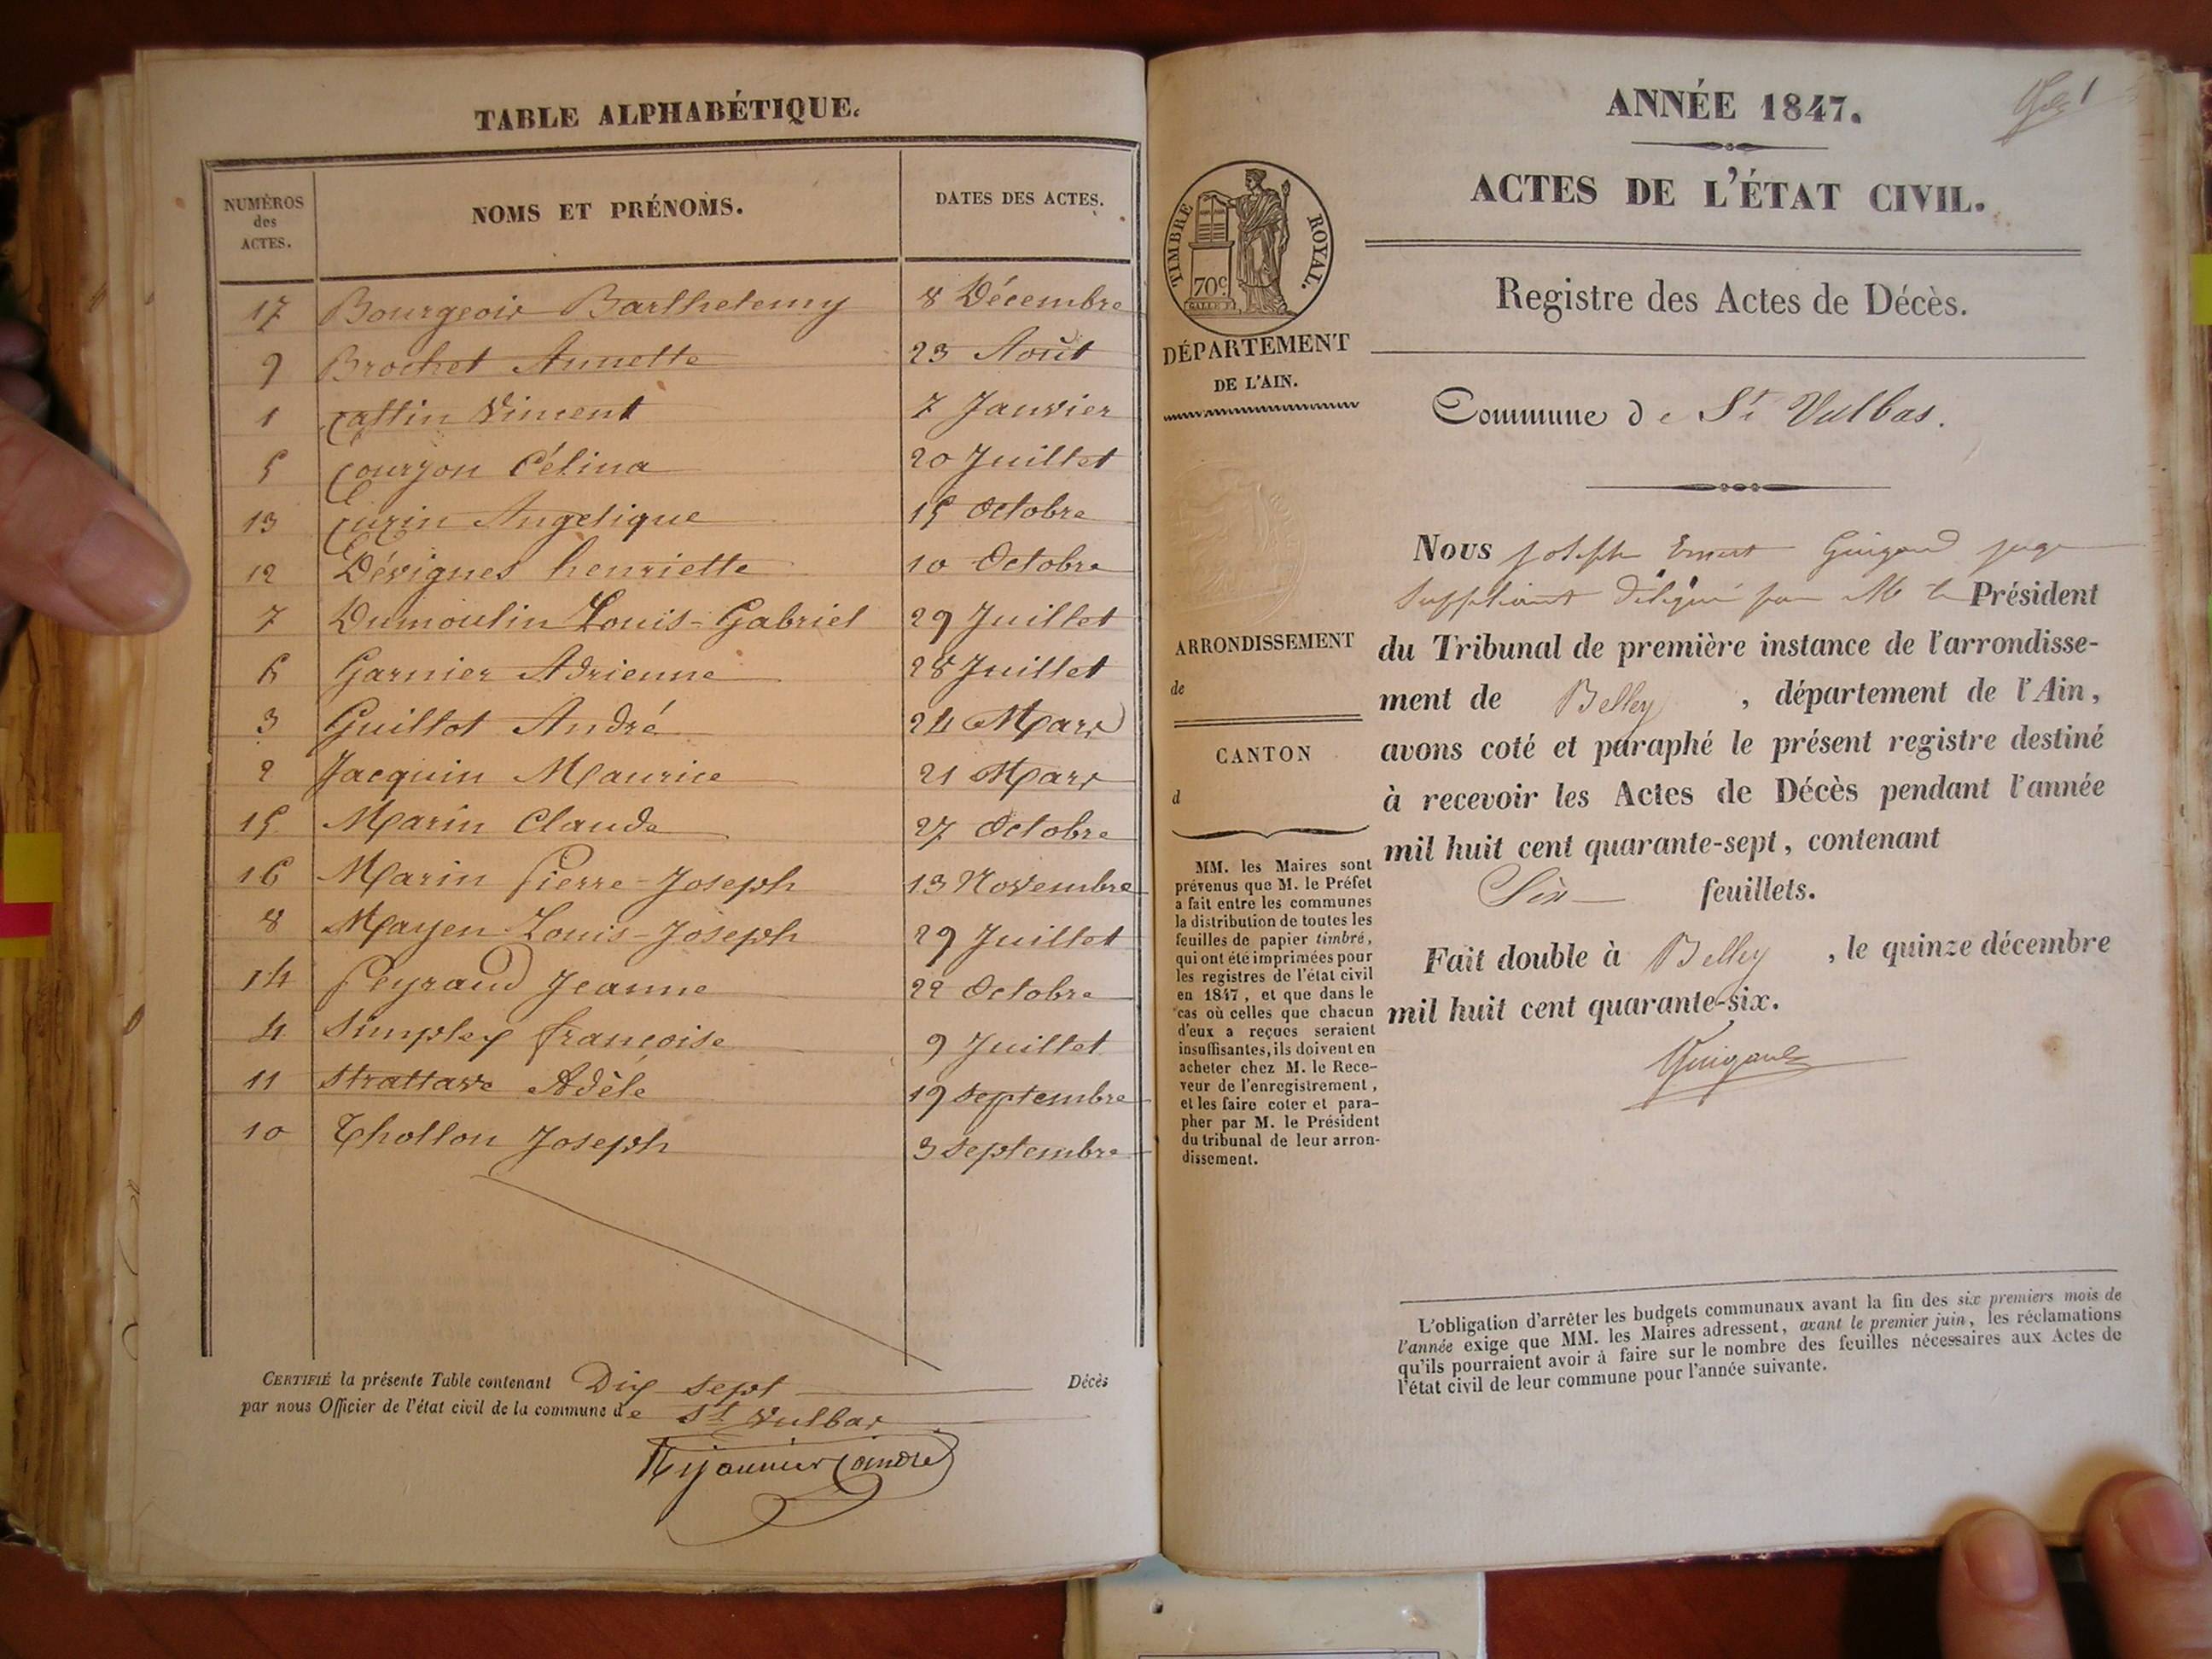 TABLE ALPHABÉTIQUE.
NUMÉROS des ACTES.
NOMS ET PRÉNOMS.
DATES DES ACTES.
17 Bourgeois Barthelemy 8 Décembre
9 Brochet Annette 23 Août
1 Cattin Vincent 7 Janvier
5 Courjon Célina 20 Juillet
13 Curin Angelique 15 Octobre
12 Dévignes henriette 10 Octobre
7 Dumoulin Louis-Gabriel 29 Juillet
6 Garnier Adrienne 28 Juillet
3 Guillot André 24 Mars
2 Jacquin Maurice 21 Mars
15 Marin Claude 27 Octobre
16 Marin Pierre-Joseph 13 Novembre
8 Mayen Louis-Joseph 29 Juillet
14 Peyraud Jeanne 22 Octobre
4 Simplex françoise 9 Juillet
11 Strattave Adèle 19 Septembre
10 Thollon Joseph 3 Septembre
CERTIFIÉ la présente Table contenant Dix sept Décès
par nous Officier de l'état civil de la commune de St Vulbas
ANNÉE 1847.
ACTES DE L'ÉTAT CIVIL.
TIMBRE ROYAL.
70c
Registre des Actes de Décès.
DÉPARTEMENT
DE L'AIN.
Commune de St Vulbas.
Nous joseph Ernest Guigard juge
suppléant délégué par M le Président
ARRONDISSEMENT
de
du Tribunal de première instance de l'arrondisse-
ment de Belley, département de l'Ain,
CANTON
d
avons coté et paraphé le présent registre destiné
à recevoir les Actes de Décès pendant l'année
mil huit cent quarante-sept, contenant
Six feuillets.
Fait double à Belley, le quinze décembre
mil huit cent quarante-six.
MM. les Maires sont
prévenus que M. le Préfet
a fait entre les communes
la distribution de toutes les
feuilles de papier timbré,
qui ont été imprimées pour
les registres de l'état civil
en 1847, et que dans le
cas où celles que chacun
d'eux a reçues seraient
insuffisantes, ils doivent en
acheter chez M. le Rece-
veur de l'enregistrement,
et les faire coter et para-
pher par M. le Président
du tribunal de leur arron-
dissement.
L'obligation d'arrêter les budgets communaux avant la fin des six premiers mois de
l'année exige que MM. les Maires adressent, avant le premier juin, les réclamations
qu'ils pourraient avoir à faire sur le nombre des feuilles nécessaires aux Actes de
l'état civil de leur commune pour l'année suivante.